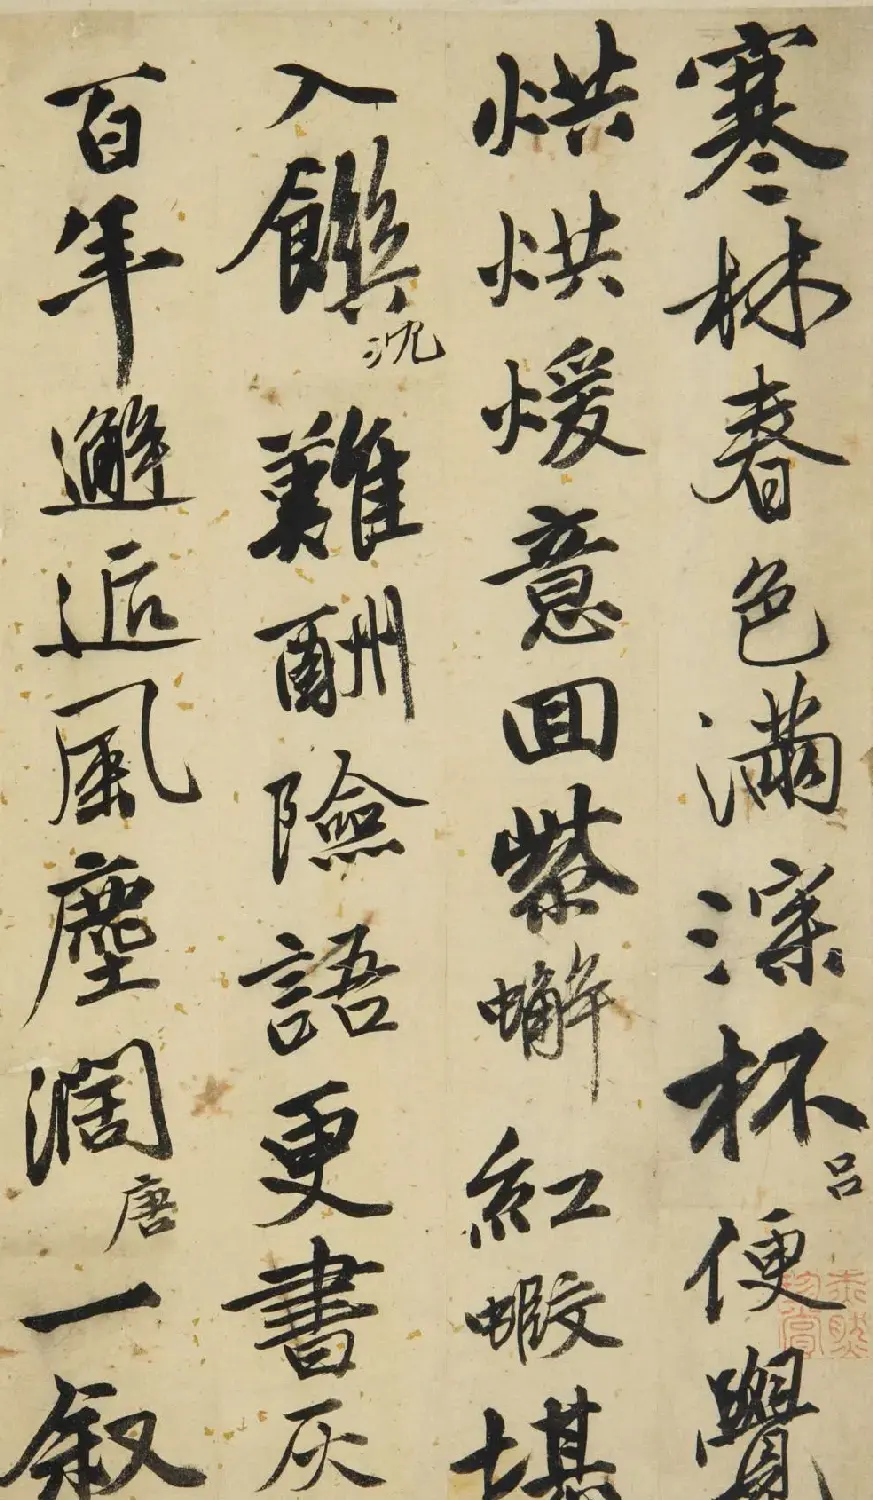 寒林春色满深杯吕便覺
烘烘煖意回紫蠏紅蝦堪
入饌沈難酬險語更書灰
百年邂逅風塵濶唐一叙